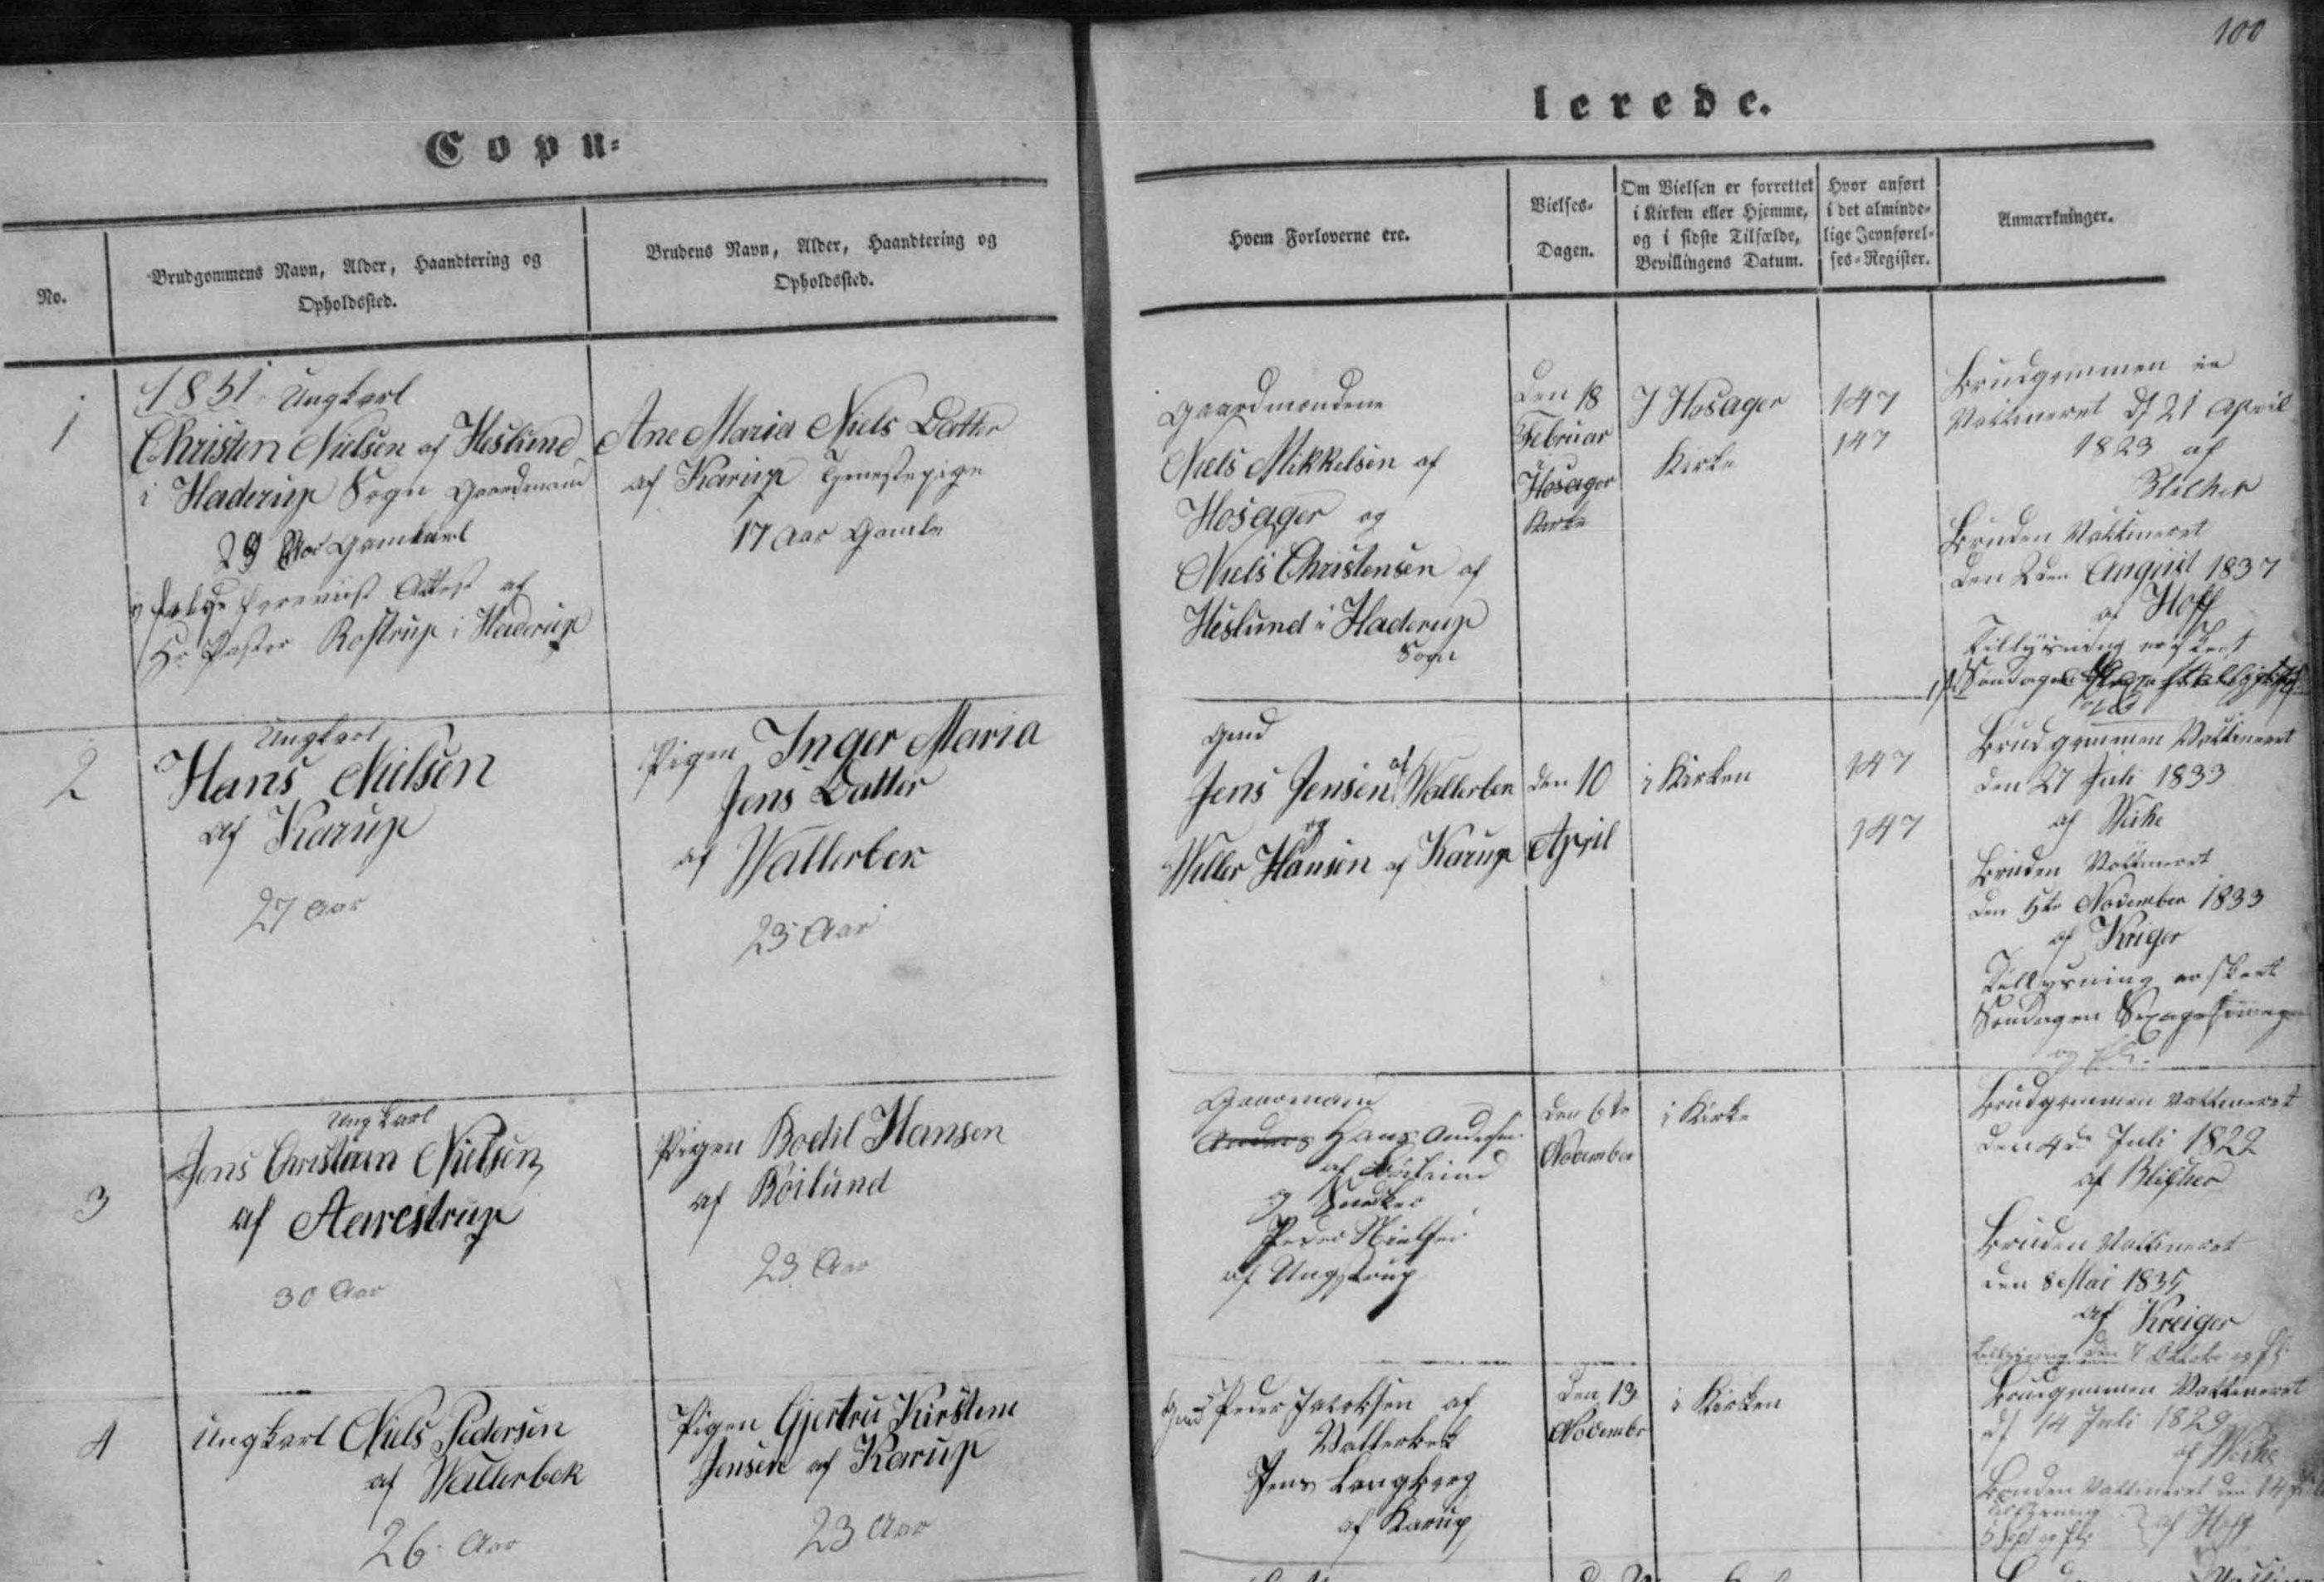 100
Copu=
lerede.
No.
Brudgommens Navn, Alder, Haandtering og
Opholdssted.
Brudens Navn, Alder, Haandtering og
Opholdssted.
Hvem Forloverne ere.
Vielses-
Dagen.
Om Vielsen er forrettet
i Kirken eller Hjemme,
og i sidste Tilfælde,
Bevillingens Datum.
Hvor anført
i det alminde-
lige Jevnførel-
ses-Register.
Anmærkninger.
1
1851 Ungkarl
Christen Nielsen af Heslund
i Haderup Sogn Gaardmand
29 Aar Gammel
Attest af
Hr Pastor Rostrup i Haderup
Ane Maria Niels Datter
af Karup Tjenestepige
17 Aar Gamle
Gaardmændene
Niels Mikkelsen af
Hosager og
Niels Christensen af
Heslund i Haderup
Sogn
Den 18
Februar
i
Hosager
Kirke
I Hosager
Kirke
147
147
Brudgommen er
Vaccineret d 21 April
1823 af
Blicher
Bruden Vaccineret
den 2den August 1837
af Hoff
Tillysning er skeet
Søndagen
2
Ungkarl
Hans Nielsen
af Karup
27 Aar
Pigen Inger Maria
Jens Datter
af Wallerbek
25 Aar
Gmd
Jens Jensen af Wallerbek
og
Weller Hansen af Karup
den 10
April
i Kirken
147
147
Brudgommen Vaccineret
den 27 Juli 1833
af
Bruden Vaccineret
den 5te November 1833
af Kriger
Tillysning er skeet
Søndagen Sexagesima
og
3
Ungkarl
Jens Christian Nielsen
af Aarestrup
30 Aar
Pigen Bodil Hansen
af Böilund
23 Aar
Gaardmand
Anders Hans Andersen
af Böilund
og Snedker
Peder Nielsen
af Ungstrup
den 6te
November
i Kirke
Brudgommen Vaccineret
den 4de Juli 1822
af Blicher
Bruden Vaccineret
den 8 Mai 1835
af Kreiger
Tillysning den 7 Oktober og
4
Ungkarl Niels Pedersen
af Wallerbek
26 Aar
Pigen Gjertru Kirstine
Jensen af Karup
23 Aar
Gmd Peder Jakobsen af
Vallerbek
Jens Langberg
af Karup
Den 13
Novembr
i Kirken
Brudgommen Vaccineret
d 14 Juli 1829
af
Bruden Vaccineret den 14
Tillysning
5 Sept og
af Hoff